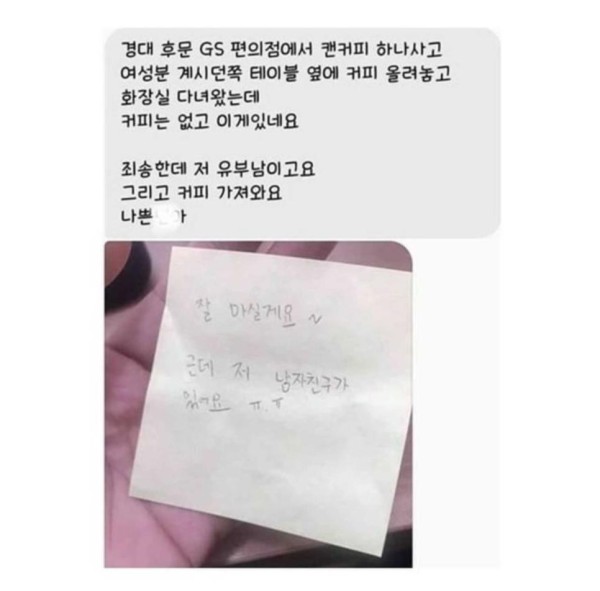 경대 후문 GS 편의점에서 캔커피 하나사고
여성분 계시던쪽 테이블 옆에 커피 올려놓고
화장실 다녀왔는데
커피는 없고 이게있네요
죄송한데 저 유부남이고요
그리고 커피 가져와요
나쁜 아
잘 마실게요 ~
근데 저 남자친구가
있어요 ㅠ.ㅠ